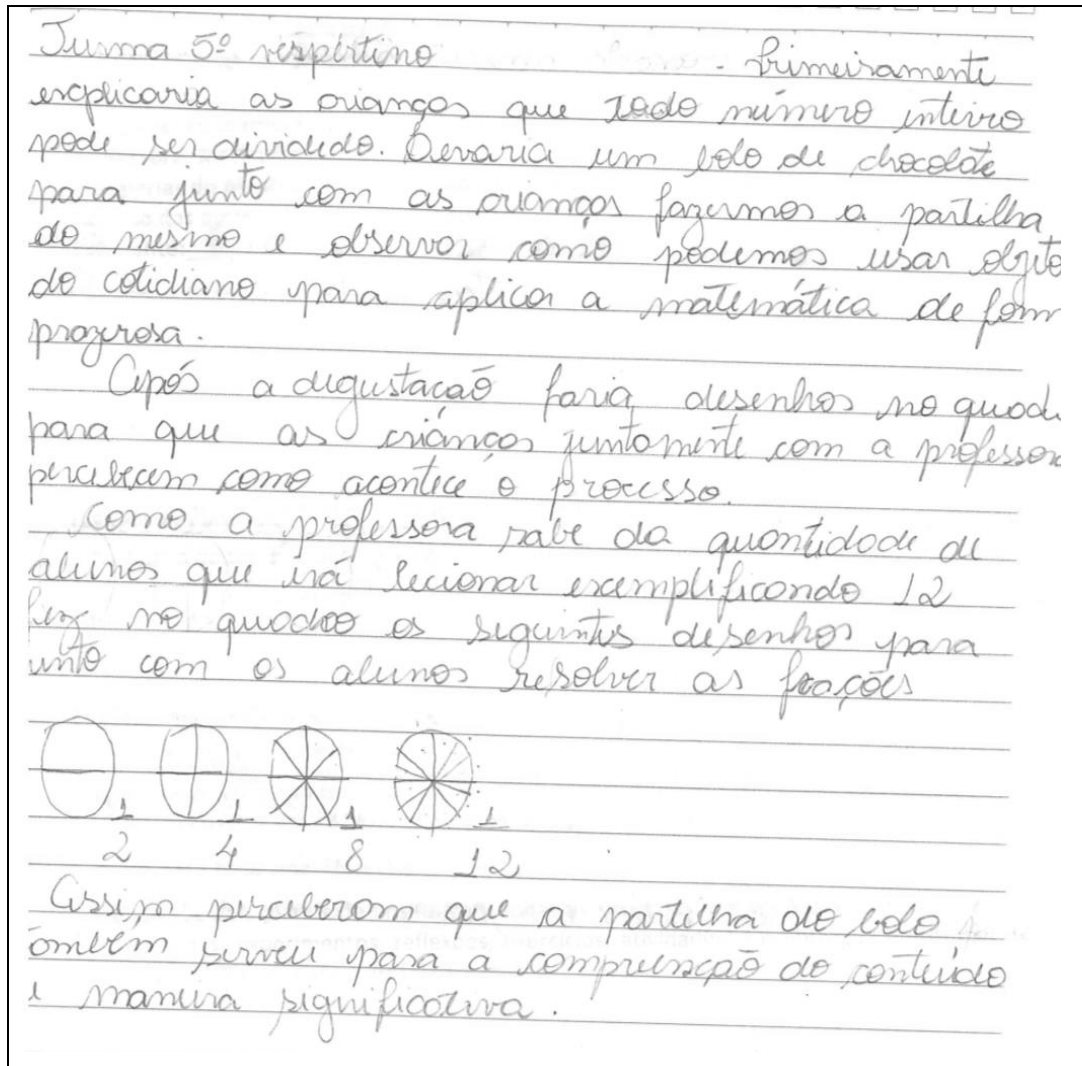 Turma 5º vespertino - Primeiramente
explicaria as crianças que todo número inteiro
pode ser dividido. Levaria um bolo de chocolate
para junto com as crianças fazermos a partilha
do mesmo e observar como podemos usar objeto
do cotidiano para aplicar a matemática de form
prazerosa.
Após a degustação faria desenhos no quad
para que as crianças juntamente com a professora
percebecem como acontece o processo.
Como a professora sabe da quantidade de
alunos que irá lecionar exemplificando 12
fez no quadro os seguintes desenhos para
unto com os alunos resolver as frações
1 1 1 1
2 4 8 12
Assim perceberam que a partilha do bolo
ambém serveu para a compreenção do conteúdo
maneira significativa.